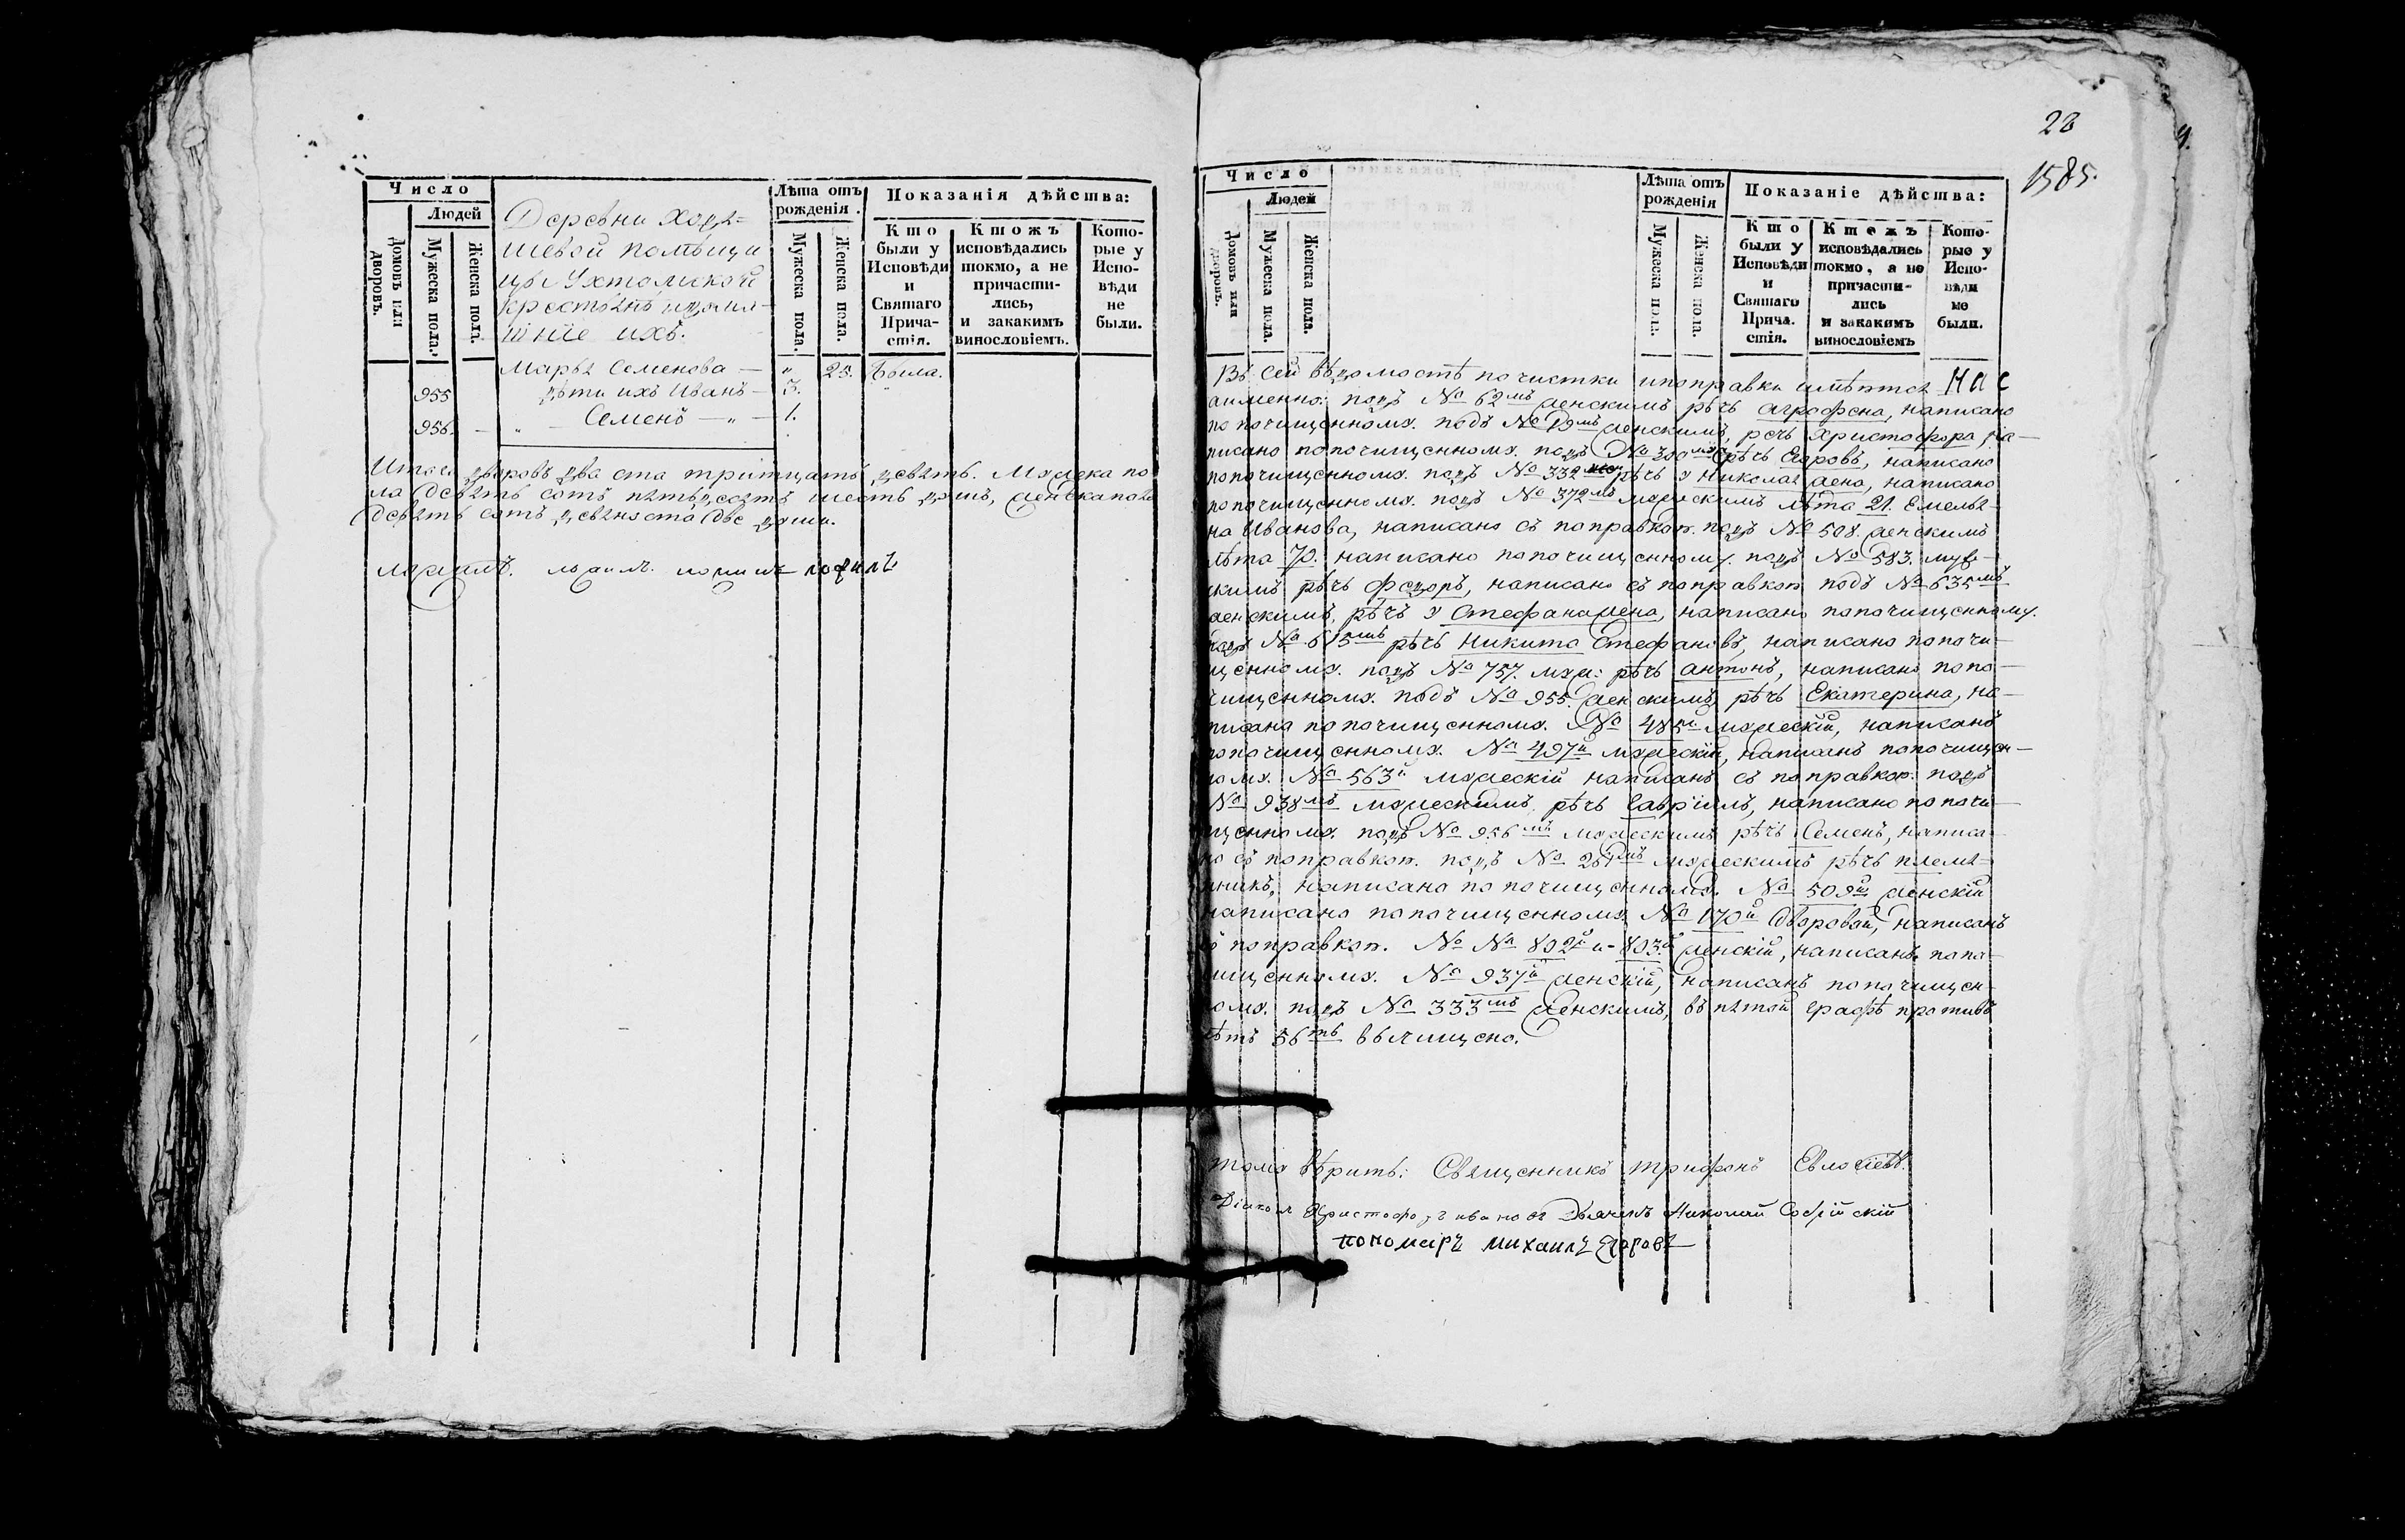 Число
Людей
Домовъ или дворовъ.
Мужеска пола.
Женска пола.
Деревни Ходя=
шевой помѣщи
цы Ухтомской
крестьянъ идомя-
шніе ихъ.
Лѣта отъ рожденія.
Мужеска пола.
Женска пола.
Показанія дѣйства:
Кто были у Исповѣди и Святаго Причастія.
Ктожъ исповѣдались токмо, а не причастились, и закакимъ винословіемъ.
Которые у Исповѣди не были.
Марья Семенова — „ 25. Была.
955 дѣти ихъ Иванъ — 3. „
956. — „ — Семенъ — „ — 1.
Итого дворовъ два ста тритцать девять. Мужска по
ла девять сотъ пятьдесятъ шесть душъ, женска пола
девять сотъ девяноста две души.
28
1585.
Число
Людей
Домовъ или дворовъ.
Мужеска пола.
Женска пола.
Лѣта отъ рожденія
Мужеска пола.
Женска пола.
Показаніе дѣйства:
Кто были у Исповѣди и Святаго Прича. стія.
Ктожъ исповѣдались токмо, а не причастились и закакимъ винословіемъ
Которые у Исповѣди не были.
Въ сей вѣдомостѣ почистки ипоправки имѣются
аименно: подъ № 62мъ женскимъ рѣчь Аграфена, написано
по почищенному. подъ № 19мъ женскимъ, речь Христофора на—
писано попочищенному. подъ № 300мъ рѣчь Егоровъ, написано
попочищенному. подъ № 332 рѣчь у Николая жена, написано
попочищенному. подъ № 372мъ мужескимъ лѣта 21. Емелья-
на Иванова, написано съ поправкою. подъ № 508. женскимъ
лѣта 70. написано попочищенному. подъ № 583. муже-
скимъ рѣчь Федоръ, написано съ поправкою подъ № 635мъ
женскимъ, рѣчь у Стефана жена, написано попочищенному.
подъ № 615мъ рѣчь Никита Стефановъ, написано попочи-
щенному. подъ № 757. муж: рѣчь Антонъ, написано попо—
чищенному. подъ № 955. женскимъ рѣчь Екатерина, на—
писано попочищенному. № 485й мужескій, написанъ
попочищенному. № 497й мужескій, написанъ попочищен—
ному. № 563й мужескій написанъ съ поправкою. подъ
№ 938мъ мужескимъ рѣчь Гавріилъ, написано попочи—
щенному. подъ № 956мъ мужескимъ рѣчь Семенъ, написа-
но съ поправкою. подъ № 261мъ мужескимъ рѣчь племя-
нникъ, написано попочищенному. № 509й женскій
написано попочищенному. № 170й дворовой, написанъ
съ поправкою. № № 802й и 803й женскій, написанъ попо-
чищенному. № 937й женскій, написанъ попочищен
ному. подъ № 333мъ женскимъ, въ пятой графѣ противъ
лѣтъ 56ть вычищено.
тому вѣрить: Священникъ Трифонъ Евло
Діаконъ Христофоръ Ивановъ Дьячекъ Николай Софійскій
пономарь михаилъ Егоровъ